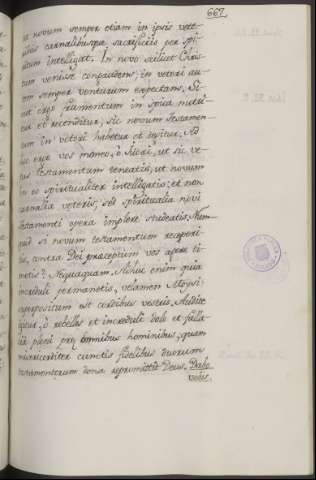 667.
ut novum semper etiam in ipsis vete-
ribus carnalibusque sacrificiis per spi-
ritum intelligat. In novo scilicet Chris-
tum venisse conspiciens; in veteri au-
tem semper venturum expectans. Si-
cut ergo frumentum in spica nutri-
tur et reconditur, sic novum testamen-
tum in veteri habetur et tegitur. Ad
hoc ergo vos moneo, ò Iudei, ut sic ve-
tus testamentum teneatis, ut novum
in eo spiritualiter intelligatis; et non
carnalia veteris, sed spiritualia novi
testamenti opera implere studeatis. Num-
quid si novum testamentum receperi-
tis, contra Dei praeceptum vos agere ti-
metis? Nequaquam. Adhuc enim quia
increduli permanetis, velamen Moysi
superpositum est cordibus vestris. Audite
igitur, ò rebelles et increduli dole et falla-
cia pleni prae omnibus hominibus, quam
misericorditer cunctis fidelibus duorum
testamentorum dona repromittit Deus. Dabo
vobis.